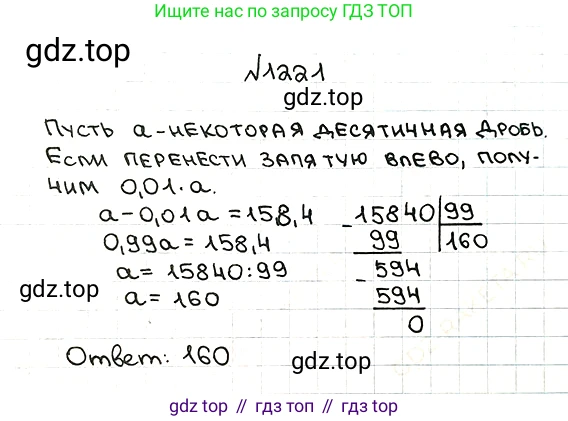 Ищите нас по запросу ГДЗ ТОП
gdz.top
№1221
gdz.top
Пусть а-некоторая десятичная дробь.
Если перенести запятую влево, полу-
чим 0,01·а.
а-0,01а=158,4
0,99а=158,4
а=15840:99
gdz.top
а=160
-15840|99
99
160
-594
594
0
Ответ: 160
gdz.top
gdz.top // гдз топ // гдз.топ